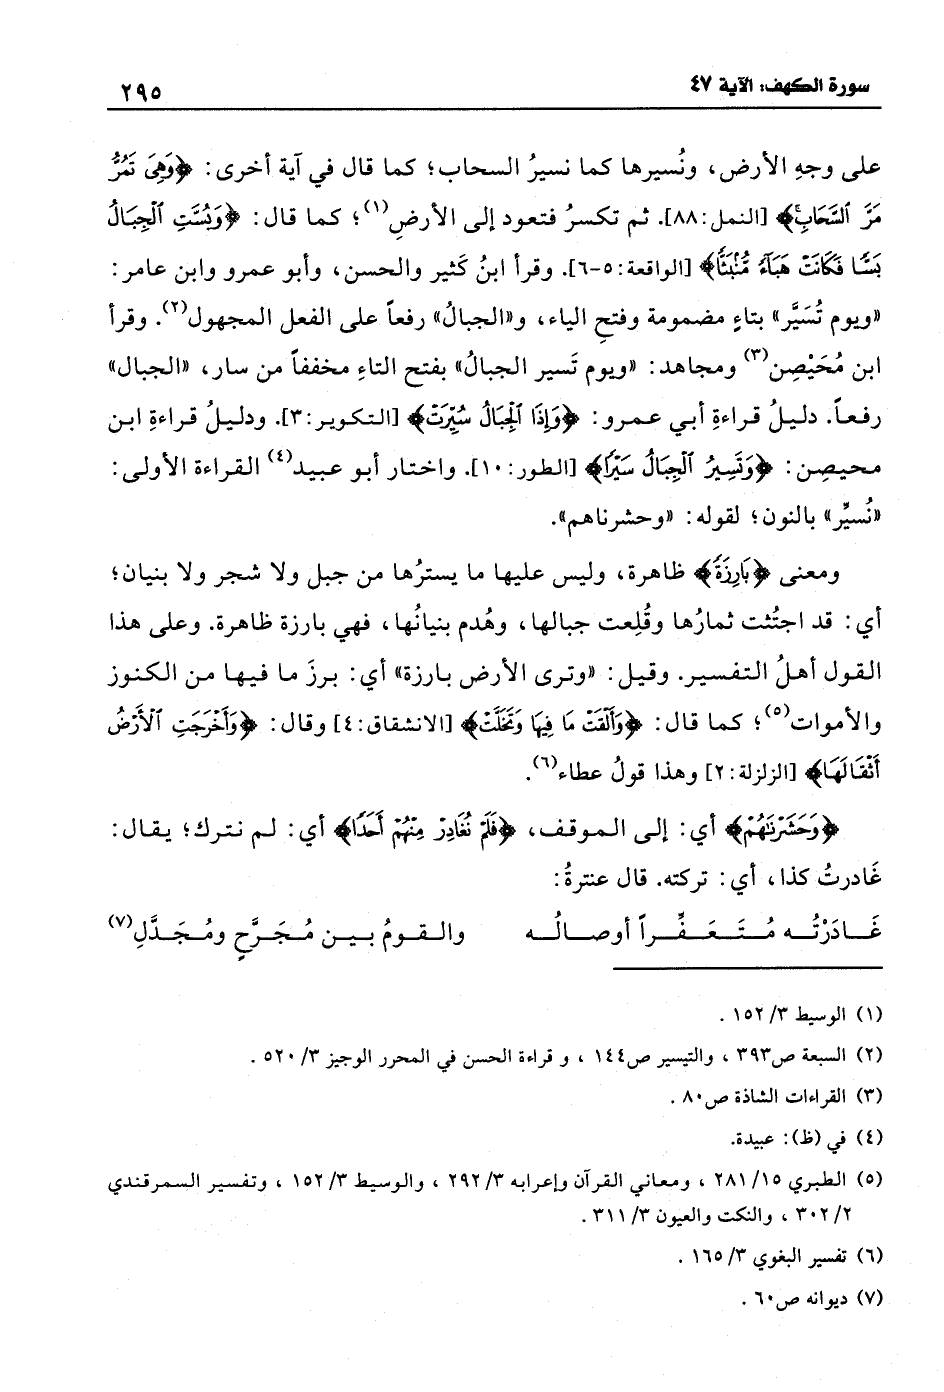 سورة الكهف: الآية ٤٧
٢٩٥
على وجهِ الأرض، ونُسيرها كما نسيرُ السحاب؛ كما قال في آية أخرى: ﴿وَهِىَ تَمُرُّ
مَرَّ ٱلسَّحَابِ﴾ [النمل:٨٨]. ثم تكسرُ فتعود إلى الأرضِ(١)؛ كما قال: ﴿وَبُسَّتِ ٱلْجِبَالُ
بَسًّا فَكَانَتْ هَبَآءً مُّنْبَثًّا﴾ [الواقعة:٥-٦]. وقرأ ابنُ كَثير والحسن، وأبو عمرو وابن عامر:
«ويوم تُسَيَّر» بتاءٍ مضمومة وفتحِ الياء، و«الجبالُ» رفعاً على الفعل المجهول(٢). وقرأ
ابن مُحَيْصِن(٣) ومجاهد: «ويوم تَسير الجبالُ» بفتح التاءِ مخففاً من سار، «الجبال»
رفعاً. دليلُ قراءةِ أبي عمرو: ﴿وَإِذَا ٱلْجِبَالُ سُيِّرَتْ﴾ [التكوير:٣]. ودليلُ قراءةِ ابن
محيصِن: ﴿وَتَسِيرُ ٱلْجِبَالُ سَيْرًا﴾ [الطور:١٠]. واختار أبو عبيد(٤) القراءة الأولى:
«نُسيِّر» بالنون؛ لقوله: «وحشرناهم».
ومعنى ﴿بَارِزَةً﴾ ظاهرة، وليس عليها ما يسترُها من جبل ولا شجر ولا بنيان؛
أي: قد اجتُثت ثمارُها وقُلِعت جبالها، وهُدم بنيانُها، فهي بارزة ظاهرة. وعلى هذا
القول أهلُ التفسير. وقيل: «وترى الأرض بارزة» أي: برزَ ما فيها من الكنوز
والأموات(٥)؛ كما قال: ﴿وَأَلْقَتْ مَا فِيهَا وَتَخَلَّتْ﴾ [الانشقاق:٤] وقال: ﴿وَأَخْرَجَتِ ٱلْأَرْضُ
أَثْقَالَهَا﴾ [الزلزلة:٢] وهذا قولُ عطاء(٦).
﴿وَحَشَرْنَٰهُمْ﴾ أي: إلى الموقف، ﴿فَلَمْ نُغَادِرْ مِنْهُمْ أَحَدًا﴾ أي: لم نترك؛ يقال:
غَادرتُ كذا، أي: تركته. قال عنترةُ:
غَـادَرْتُـه مُـتَـعَـفِّـراً أوصـالُـه والـقـومُ بـيـن مُـجَـرَّحٍ ومُـجَـدَّلِ(٧)
(١) الوسيط ٣/ ١٥٢ .
(٢) السبعة ص٣٩٣ ، والتيسير ص١٤٤ ، و قراءة الحسن في المحرر الوجيز ٣/ ٥٢٠ .
(٣) القراءات الشاذة ص٨٠ .
(٤) في (ظ): عبيدة.
(٥) الطبري ١٥/ ٢٨١ ، ومعاني القرآن وإعرابه ٣/ ٢٩٢ ، والوسيط ٣/ ١٥٢ ، وتفسير السمرقندي
٢/ ٣٠٢ ، والنكت والعيون ٣/ ٣١١ .
(٦) تفسير البغوي ٣/ ١٦٥ .
(٧) ديوانه ص٦٠ .